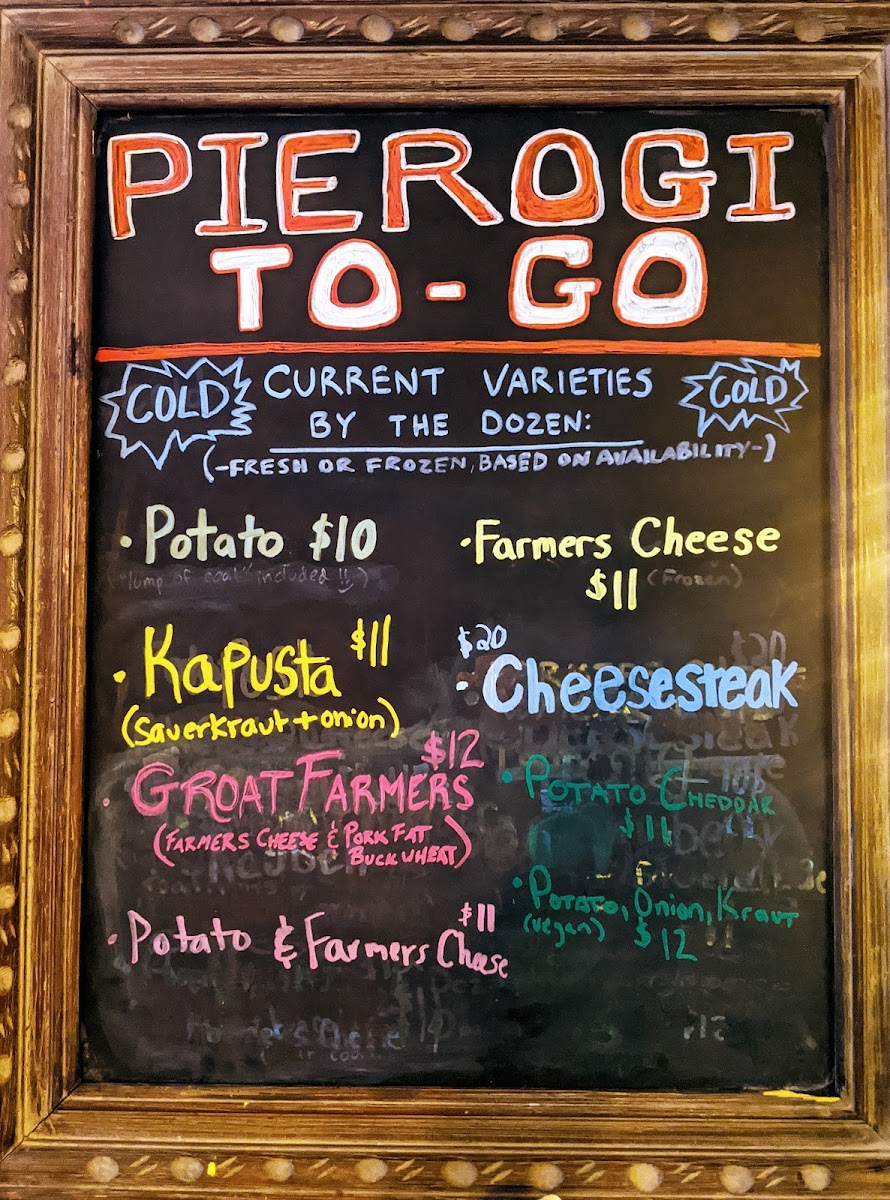 PIEROGI
TO-GO
COLD
CURRENT VARIETIES
BY THE DOZEN:
COLD
(-FRESH OR FROZEN, BASED ON AVAILABILITY-)
• Potato $10
("lump of coal" included!!)
• Farmers Cheese
$11 (Frozen)
• Kapusta $11
(Sauerkraut + onion)
$20
• Cheesesteak
$12
• GROAT FARMERS
(FARMERS CHEESE & PORK FAT
BUCKWHEAT)
• POTATO CHEDDAR
$11
$11
• Potato & Farmers Cheese
• POTATO, Onion, Kraut
(vegan) $12